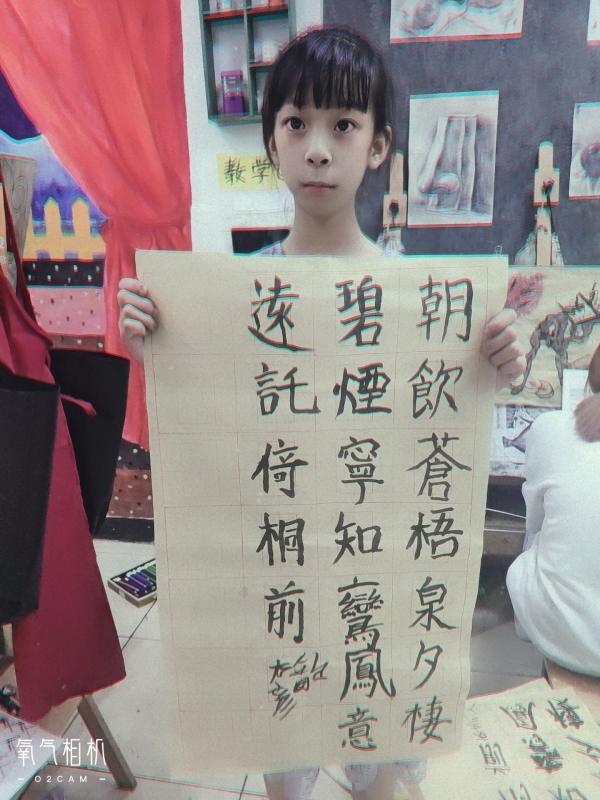 朝飲蒼梧泉夕棲
碧煙寧知鸞鳳意
遠託倚桐前
教学
氧气相机
O2CAM